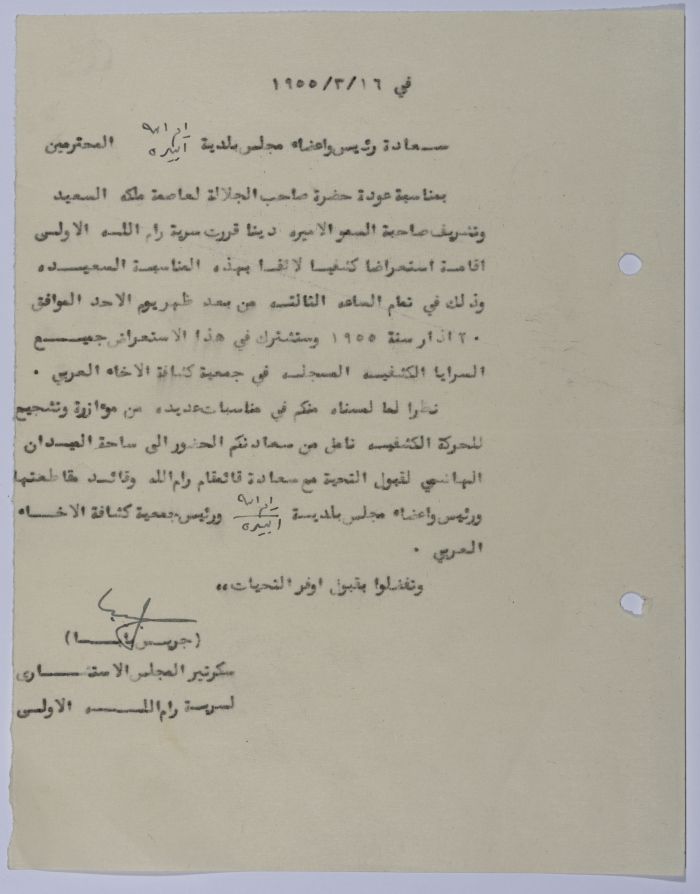 في ١٩٥٥/٣/١٦
سعادة رئيس واعضاء مجلس بلدية رام الله البيره المحترمين
بمناسبة عودة حضرة صاحب الجلالة لعاصمة ملكه السعيد
وتشريف صاحبة السمو الاميره دينا قررت سرية رام الله الاولى
اقامة استعراضا كشفيا لائقا بهذه المناسبة السعيده
وذلك في تمام الساعه الثالثه من بعد ظهر يوم الاحد الموافق
٢٠ اذار سنة ١٩٥٥ وستشترك في هذا الاستعراض جميع
السرايا الكشفيه المسجله في جمعية كشافة الاخاء العربي .
نظرا لما لمسناه منكم في مناسبات عديده من موءازرة وتشجيع
للحركة الكشفيه نامل من سعادتكم الحضور الى ساحة الميدان
الهاشمي لقبول التحية مع سعادة قائمقام رام الله وقائد مقاطعتها
ورئيس واعضاء مجلس بلدية رام الله البيره ورئيس جمعية كشافة الاخاء
العربي .
وتفضلوا بقبول اوفر التحيات،،
(جريس
سكرتير المجلس الاستشاري
لسرية رام الله الاولى